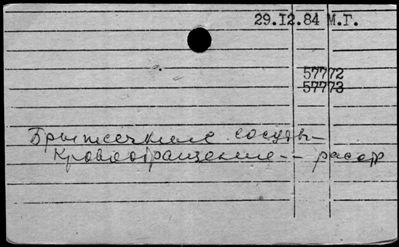 29.I2.84 М.Г.
57772
57773
Брыжеечные сосуды-
Кровообращение--расстр